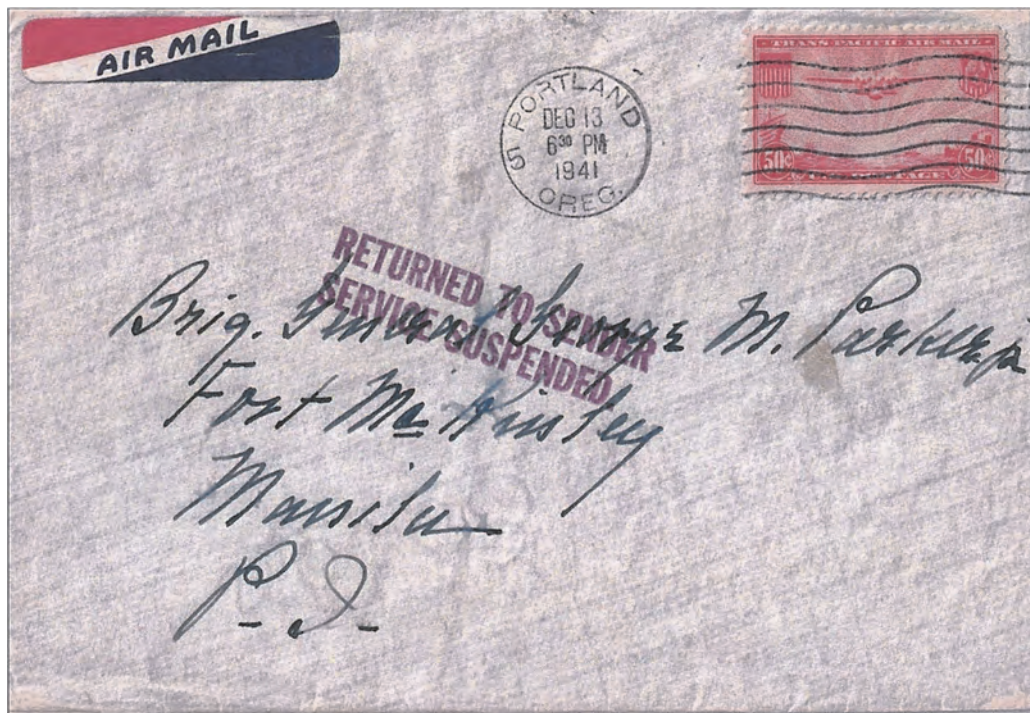 AIR MAIL
5 PORTLAND
DEC 13
6 30 PM
1941
OREG.
TRANS-PACIFIC AIR MAIL
50¢ U.S. POSTAGE 50¢
RETURNED TO SENDER
SERVICE SUSPENDED
Brig. General George M. Parker Jr
Fort Mc Kinley
Manila
P. I.